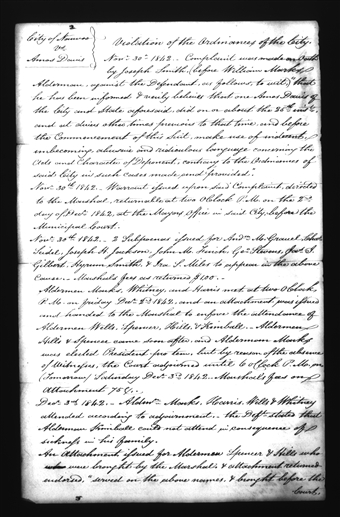 2
City of Nauvoo
vs
Amos Davis
Violation of the Ordinances of the City.
Nov. 30th 1842. Complaint was made on Oath
by Joseph Smith, (before William Marks,
Alderman, against the Defendant, as follows, to wit,) that
he has been informed & verily believes that one Amos Davis of
the City and State aforesaid, did on or about the 28th inst.
and at divers other times previous to that time, and before
the Commencement of this Suit, make use of indecent,
unbecoming, abusive and ridiculous language concerning the
Acts and Character of Deponent, contrary to the Ordinances of
said City in such cases made and provided.
Nov. 30th 1842. Warrant issued upon said Complaint, directed
to the Marshal, returnable at two O'Clock P.M. on the 2nd
day of Decr. 1842, at the Mayors Office in said City, before the
Municipal Court.
Nov. 30th 1842. 2 Subpoenas issued for M. Gravel,
Joseph H. Jackson, John M. Finch, Geo. Stevens,
Gilbert, Hyrum Smith, & Ira S. Miles to appear in the above
Cause. Marshals fees as returned $1.00.
Aldermen Marks, Whitney, and Harris met at two O'Clock
P.M. on friday Decr. 2d 1842, and an attachment was issued
and handed to the Marshal to enforce the attendance of
Aldermen Wells, Spencer, Hills & Kimball. Aldermen
Hills & Spencer came soon after, and Alderman Marks
was elected President pro tem. but by reason of the absence
of Witnesses, the Court adjourned until 6 o'Clock P.M. on
(Tomorrow) Saturday Decr. 3d 1842. Marshal's fees on
Attachment 75 c.
Decr. 3rd 1842. Aldermn. Marks, Harris, Wells & Whitney
attended according to adjournment. the Deft. stated that
Alderman Kimball could not attend in consequence of
sickness in his family.
An Attachment issued for Aldermen Spencer & Hills who
were brought by the Marshal, & attachment returned
endorsed, "served on the above names, & brought before the
Court,